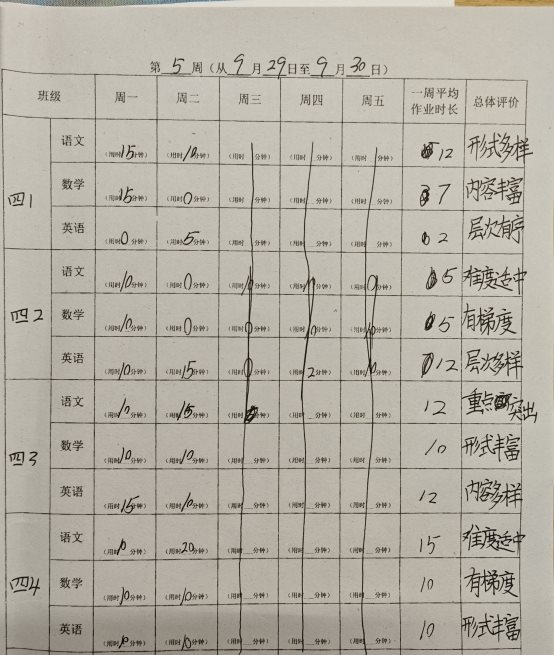 第 5 周（从 9 月 29 日至 9 月 30 日）
班级 周一 周二 周三 周四 周五 一周平均作业时长 总体评价
四1
语文 （用时15分钟） （用时10分钟） （用时 分钟） （用时 分钟） （用时 分钟） 12 形式多样
数学 （用时15分钟） （用时0分钟） （用时 分钟） （用时 分钟） （用时 分钟） 7 内容丰富
英语 （用时0分钟） （用时5分钟） （用时 分钟） （用时 分钟） （用时 分钟） 2 层次有序
四2
语文 （用时10分钟） （用时0分钟） （用时 分钟） （用时 分钟） （用时0分钟） 5 难度适中
数学 （用时10分钟） （用时0分钟） （用时0分钟） （用时10分钟） （用时 分钟） 5 有梯度
英语 （用时10分钟） （用时15分钟） （用时0分钟） （用时2分钟） （用时 分钟） 12 层次多样
四3
语文 （用时10分钟） （用时15分钟） （用时 分钟） （用时 分钟） （用时 分钟） 12 重点突出
数学 （用时10分钟） （用时10分钟） （用时 分钟） （用时 分钟） （用时 分钟） 10 形式丰富
英语 （用时15分钟） （用时10分钟） （用时 分钟） （用时 分钟） （用时 分钟） 12 内容多样
四4
语文 （用时10分钟） （用时20分钟） （用时 分钟） （用时 分钟） （用时 分钟） 15 难度适中
数学 （用时10分钟） （用时10分钟） （用时 分钟） （用时 分钟） （用时 分钟） 10 有梯度
英语 （用时10分钟） （用时10分钟） （用时 分钟） （用时 分钟） （用时 分钟） 10 形式丰富